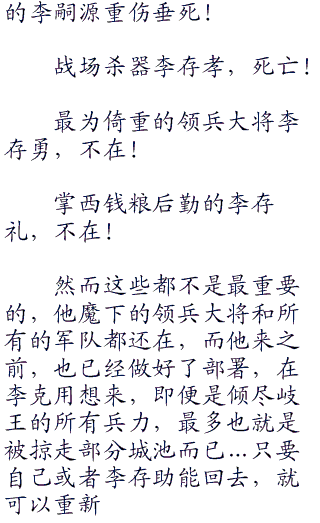 的李嗣源重伤垂死！
战场杀器李存孝，死亡！
最为倚重的领兵大将李
存勇，不在！
掌西钱粮后勤的李存
礼，不在！
然而这些都不是最重要
的，他魔下的领兵大将和所
有的军队都还在，而他来之
前，也已经做好了部署，在
李克用想来，即便是倾尽岐
王的所有兵力，最多也就是
被掠走部分城池而已…只要
自己或者李存助能回去，就
可以重新